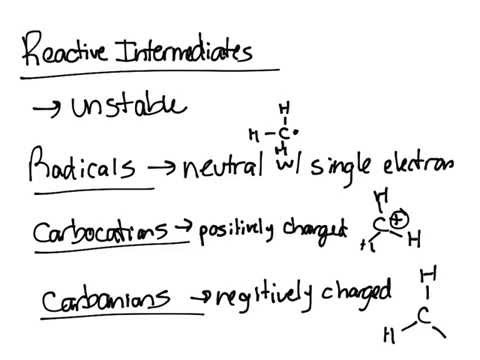 Reactive Intermediates
→ unstable
H
H-C•
H
Radicals → neutral w/ single electron
H
Carbocations → positively charged C+
H H
Carbanions → negitively charged
H
C
H